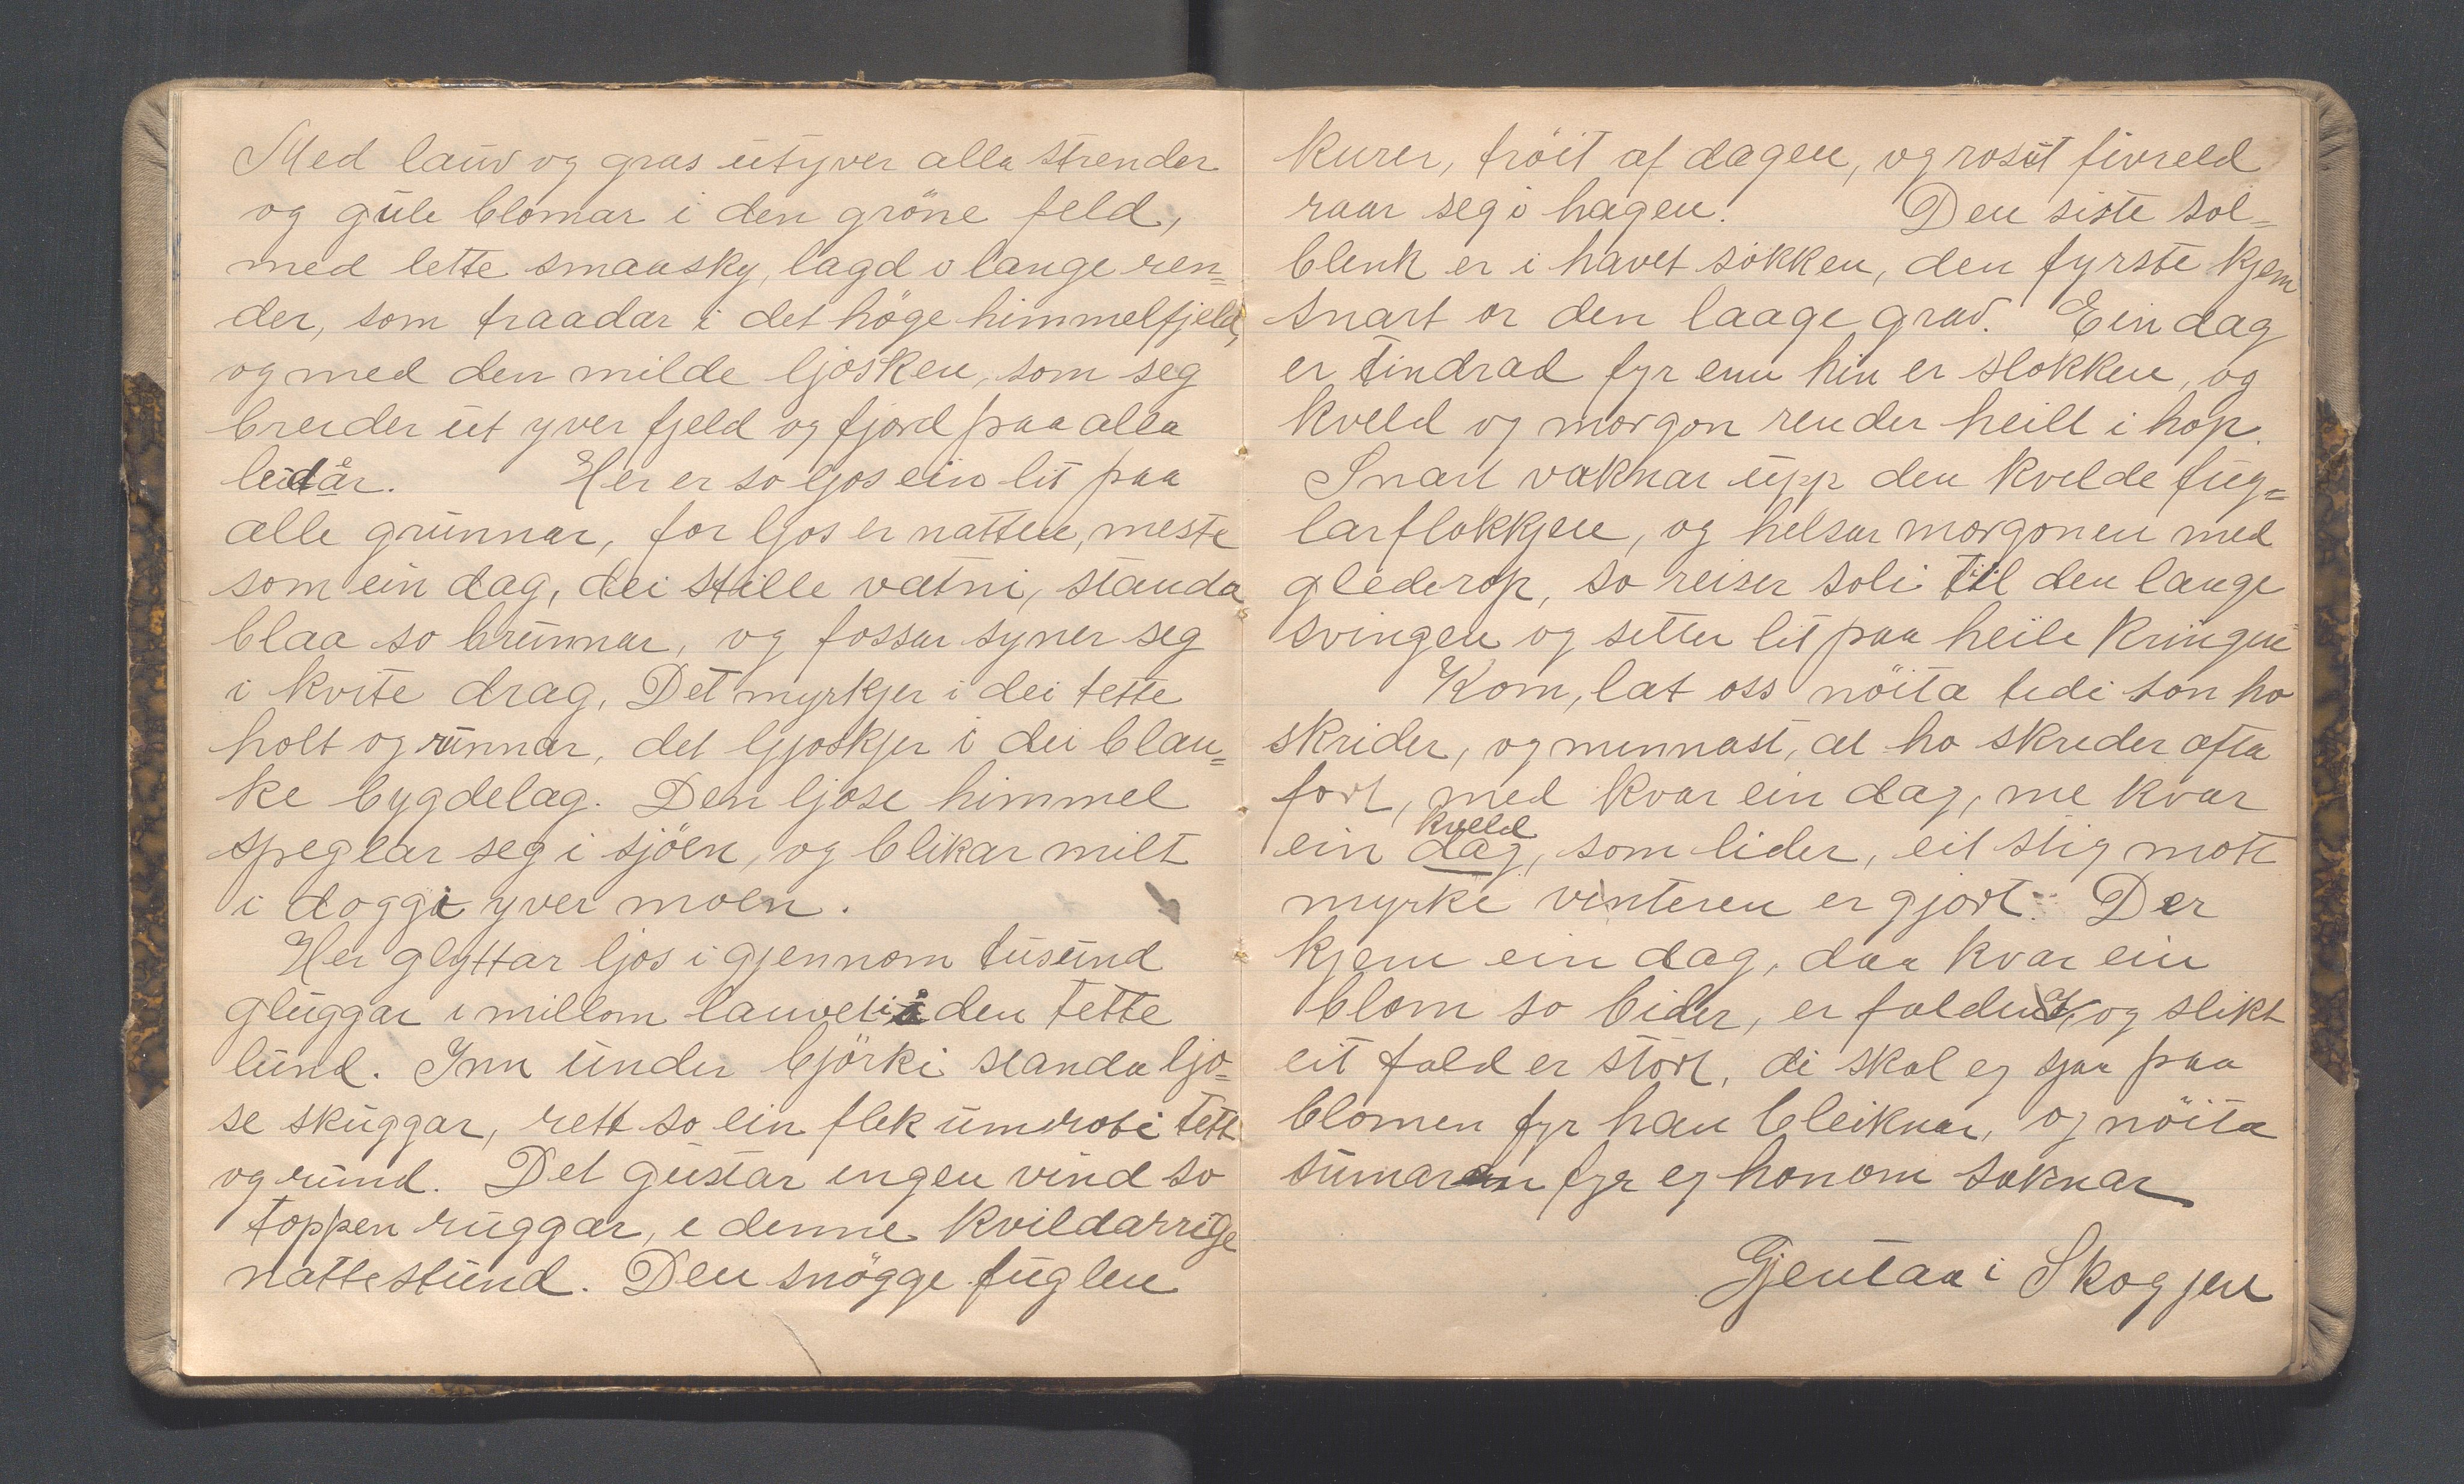 Med lauv og gras utyver alla strender
og gule blomar i den gröne feld,
med lette smaasky, lagd i lange ren=
der, som traadar i det höge himmelfjeld,
og med den milde ljosken, som seg
breider ut yver fjeld og fjord paa alla
leidår. Her er so ljos ein lit paa
alle grunnar, for ljos er natten, meste
som ein dag, dei stille vatni, standa
blaa so brunnar, og fossar syner seg
i kvite drag, Det myrkjer i dei tette
holt og runnar, det ljoskjer i dei blan=
ke bygdelag. Den ljose himmel
speglar seg i sjöen, og blikar milt
i doggi yver moen.
Her glyttar ljos i gjennom tusund
gluggar i millom lauvet i den tette
lund. Inn under björki standa ljo=
se skuggar, rett so ein flek um roti tett
og rund. Det gustar ingen vind so
toppen ruggar, i denne kvildarrige
nattestund. Den snögge fuglen
kurer, tröit af dagen, og rosut fivreld
raar seg i hagen. Den siste sol=
blenk er i havet sökken, den fyrste kjem
snart or den laage grav. Ein dag
er tindrad fyr enn hin er slokken, og
kveld og morgon render heilt i hop.
Snart vaknar upp den kvilde fug=
larflokkjen, og helsar morgonen med
glederop, so reiser soli til den lange
svingen og setter lit paa heile kringen
Kom, lat oss nöita tidi son ho
skrider, og minnast, at ho skrider ofta
fort, med kvar ein dag, me kvar
kveld
ein dag, som lider, eit stig mott
myrke vinteren er gjort. Der
kjem ein dag, daa kvar ein
blom so bider, er falden, og slikt
eit fald er stort, di skal eg sjaa paa
blomen fyr han bleiknar, og nöita
sumaren fyr eg honom saknar
Gjentaa i Skogjen